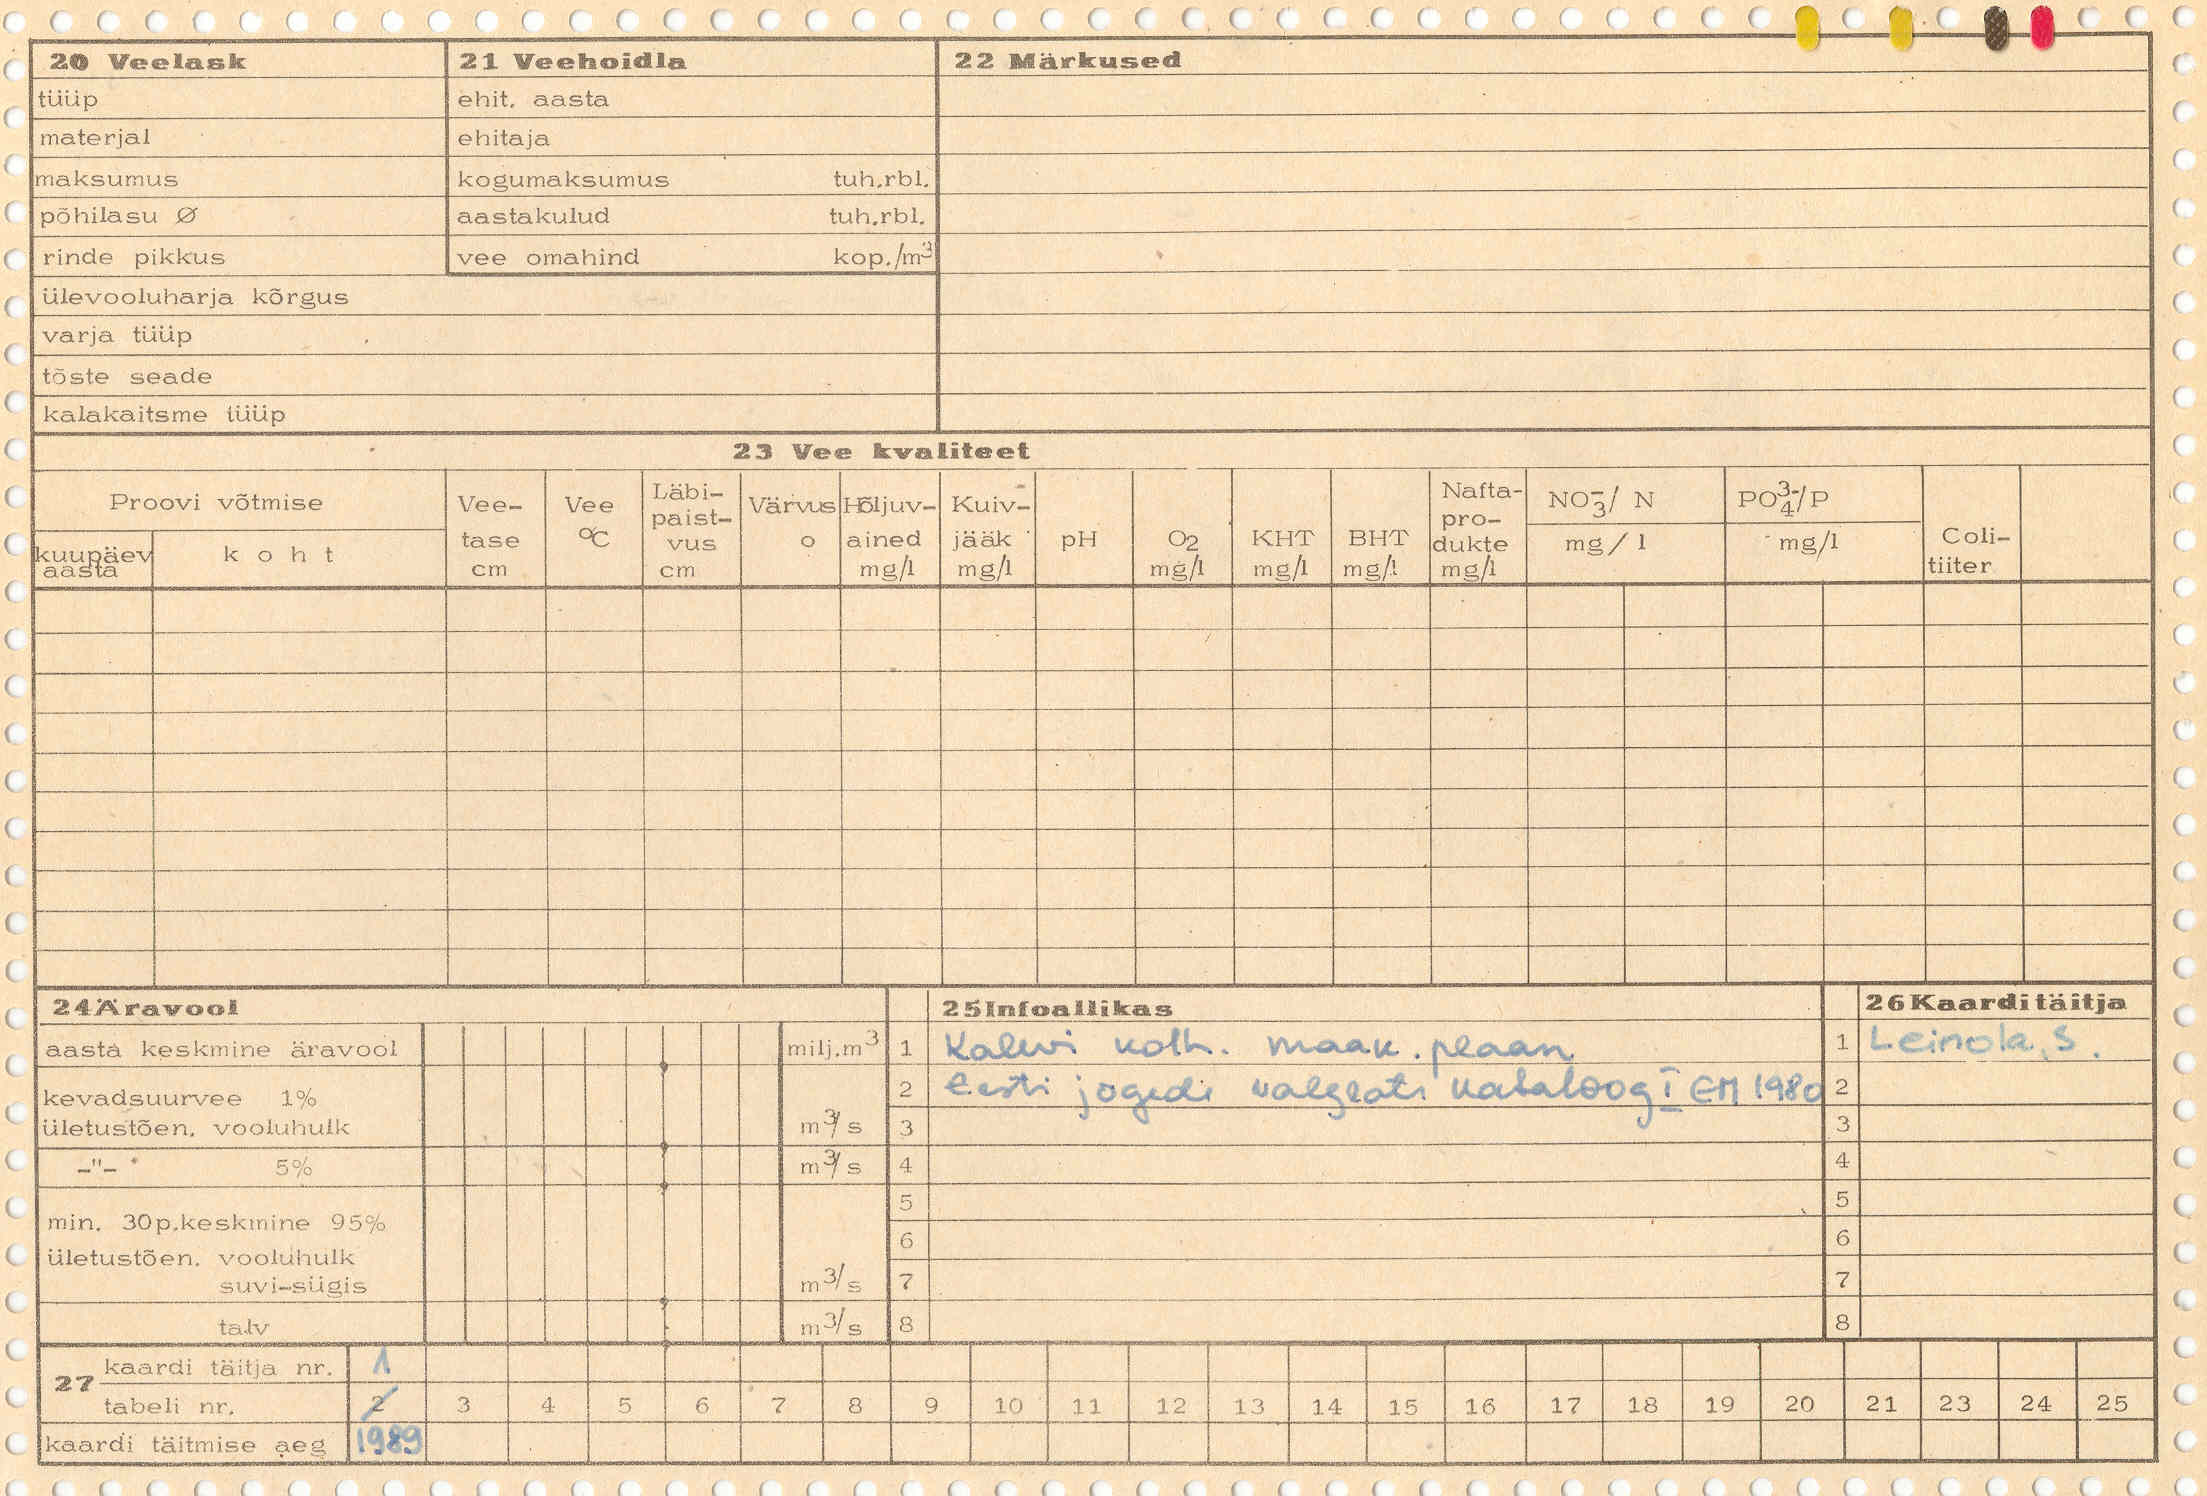 20 Veelask
tüüp
materjal
maksumus
põhilasu Ø
rinde pikkus
ülevooluharja kõrgus
varja tüüp
tõste seade
kalakaitsme tüüp
21 Veehoidla
ehit. aasta
ehitaja
kogumaksumus tuh.rbl.
aastakulud tuh.rbl.
vee omahind kop./m³
22 Märkused
23 Vee kvaliteet
Proovi võtmise
kuupäev
aasta
koht
Vee-
tase
cm
Vee
°C
Läbi-
paist-
vus
cm
Värvus
o
Hõljuv-
ained
mg/l
Kuiv-
jääk
mg/l
pH
O2
mg/l
KHT
mg/l
BHT
mg/l
Nafta-
pro-
dukte
mg/l
NO3-/ N
mg/l
PO4 3-/P
mg/l
Coli-
tiiter
24 Äravool
aasta keskmine äravool milj.m³
kevadsuurvee 1%
ületustõen. vooluhulk m³/s
-"- 5% m³/s
min. 30p.keskmine 95%
ületustõen. vooluhulk
suvi-sügis m³/s
talv m³/s
25 Infoallikas
1 Kalevi kolh. maak. plaan
2 Eesti jõgede valgeate kataloog I EM 1980
3
4
5
6
7
8
26 Kaardi täitja
1 Leinola, S.
2
3
4
5
6
7
8
27
kaardi täitja nr. 1
tabeli nr. 2 3 4 5 6 7 8 9 10 11 12 13 14 15 16 17 18 19 20 21 23 24 25
kaardi täitmise aeg 1989